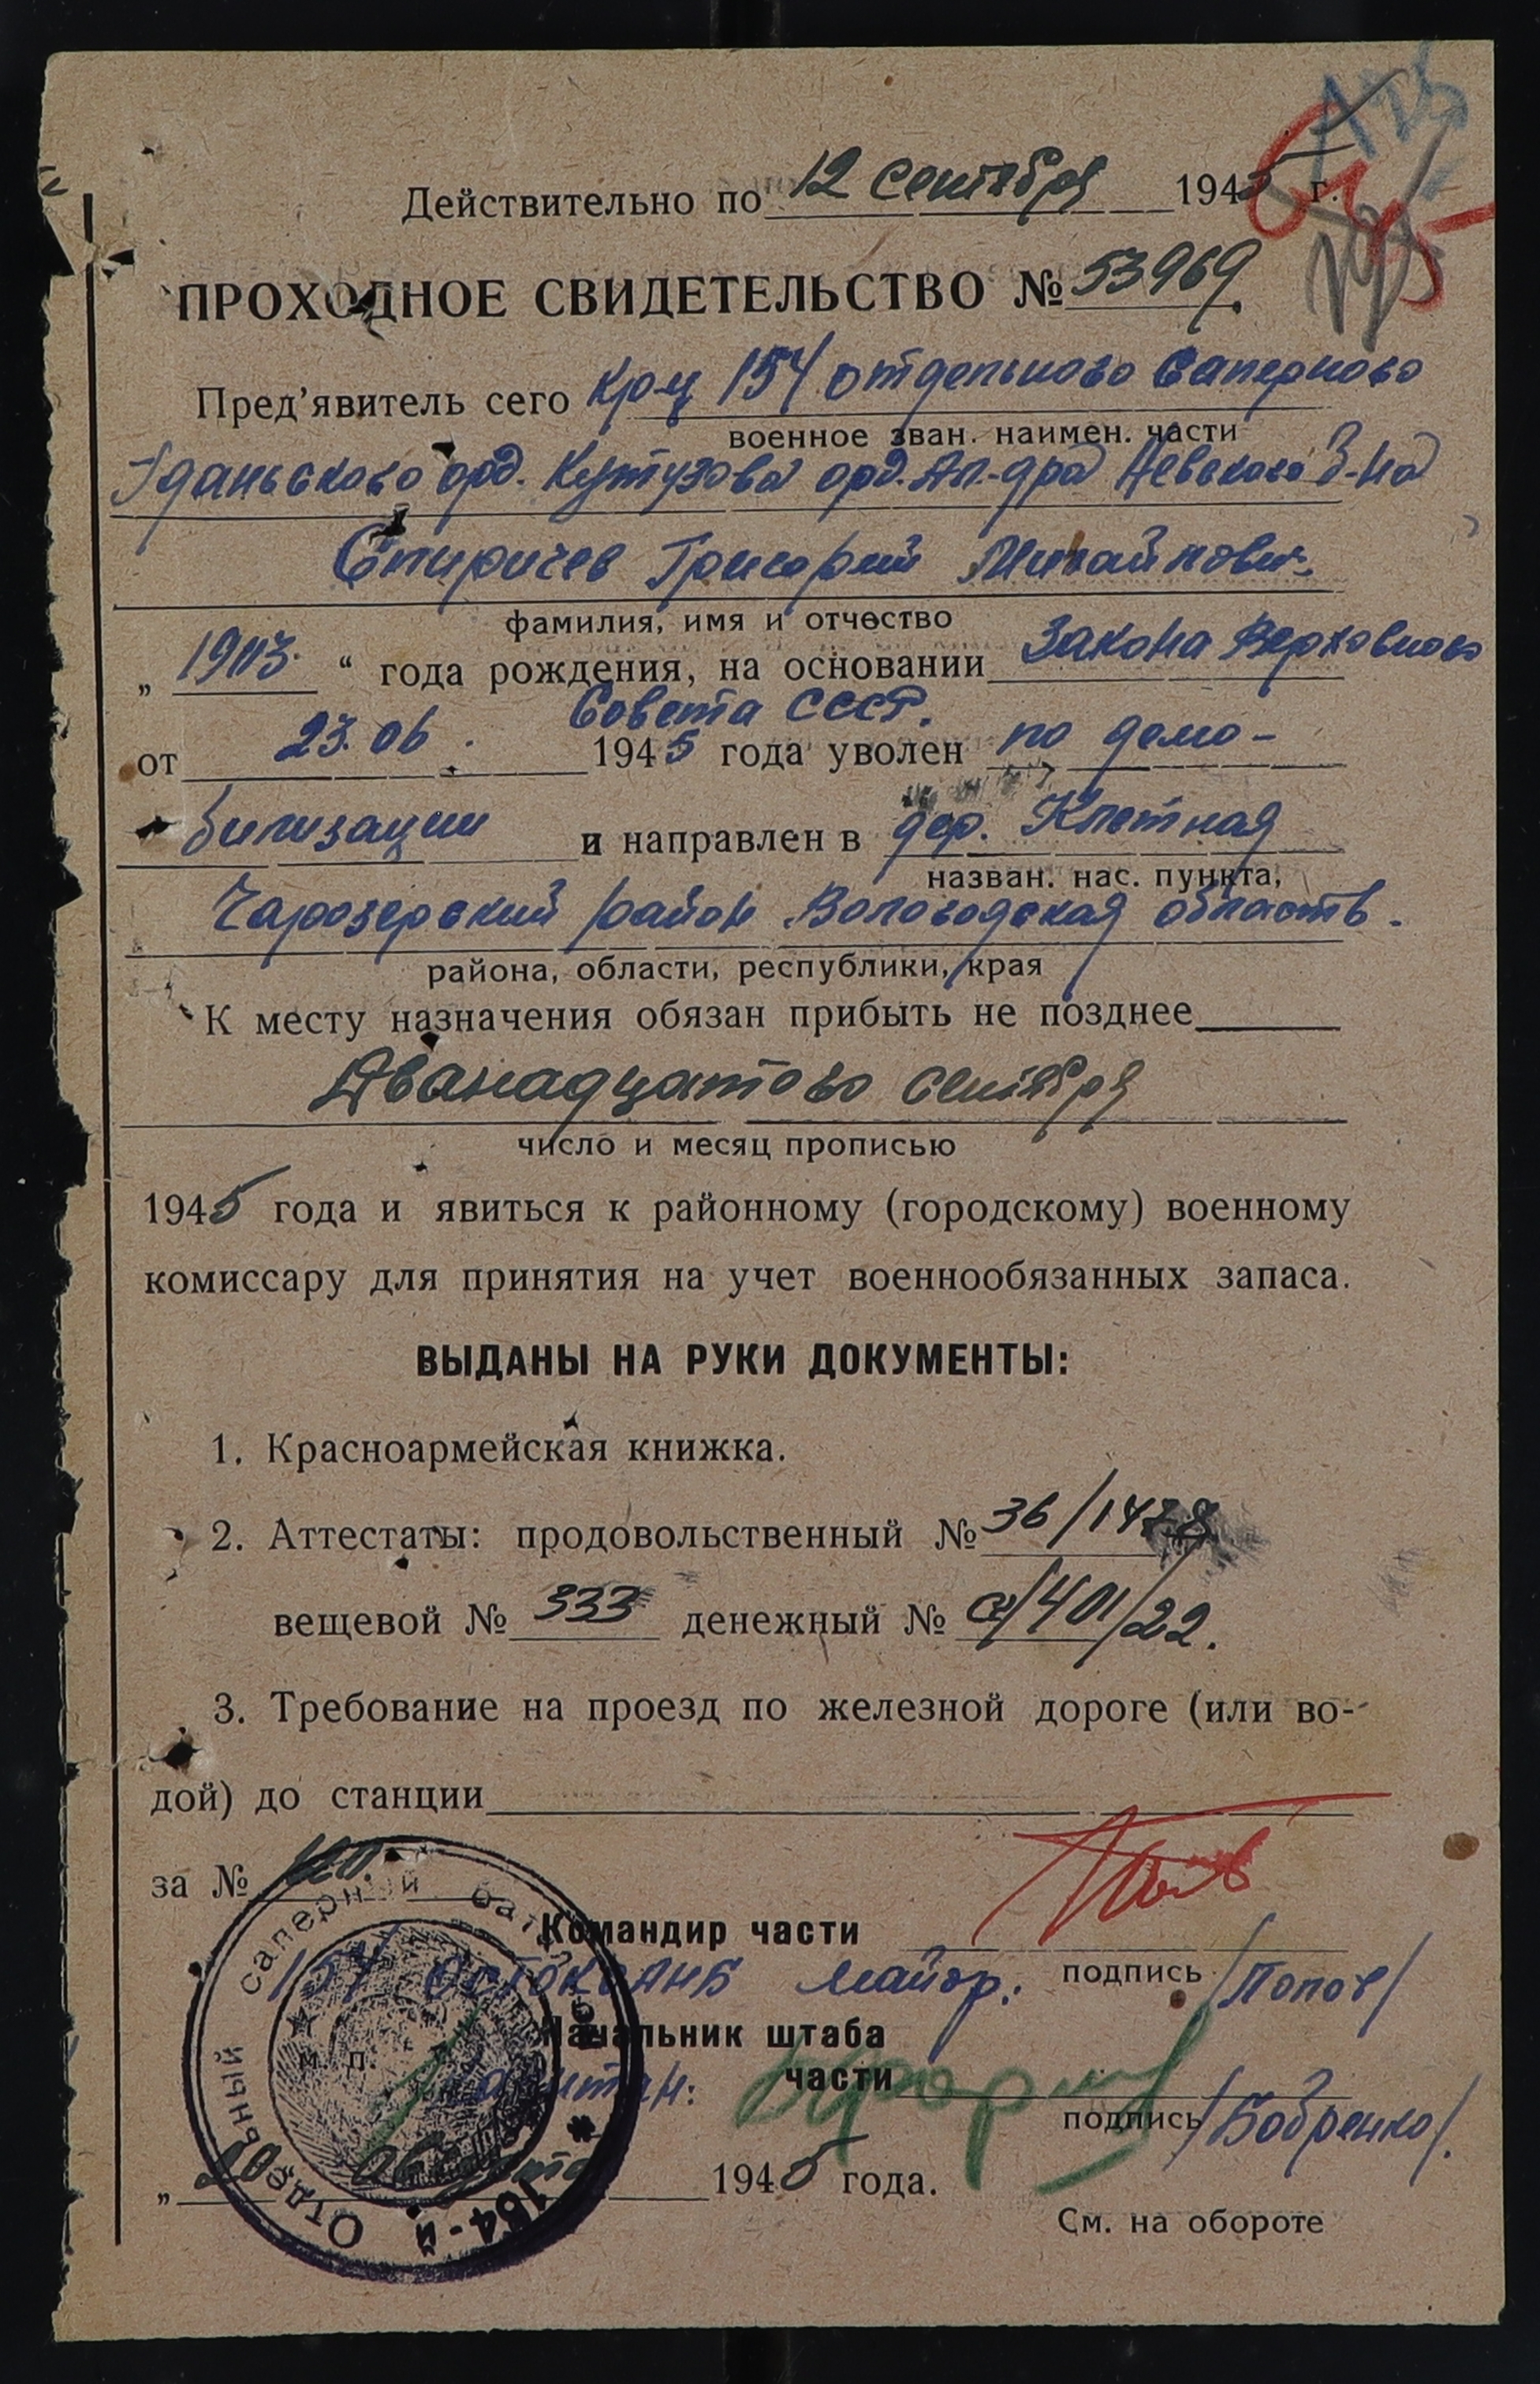 Действительно по 12 сентября 1945 г.
ПРОХОДНОЕ СВИДЕТЕЛЬСТВО № 53969.
Пред'явитель сего кр-ц 154 отдельново Саперново
военное зван. наимен. части
Гданьсково орд. Кутузова орд. Ал-дра Невсково б-на
Спиричев Григорий Михайлович.
фамилия, имя и отчество
„ 1903. “ года рождения, на основании Закона Верховново
Совета СССР.
от 23.06. 1945 года уволен по демо-
билизации и направлен в дер. Клетная
назван. нас. пункта,
Чарозерский район Вологодская область.
района, области, республики, края
К месту назначения обязан прибыть не позднее
Дванадцатово сентября
число и месяц прописью
1945 года и явиться к районному (городскому) военному
комиссару для принятия на учет военнообязанных запаса.
ВЫДАНЫ НА РУКИ ДОКУМЕНТЫ:
1. Красноармейская книжка.
2. Аттестаты: продовольственный № 36/1478
вещевой № 333 денежный № а/401/22.
3. Требование на проезд по железной дороге (или во-
дой) до станции
за №
Командир части
154 майор: подпись /Попов/
Начальник штаба
капитан: части
подпись /Бобренко/.
„ 20 августа 1945 года.
См. на обороте
Отдельный 154-й саперный бат
м. п.